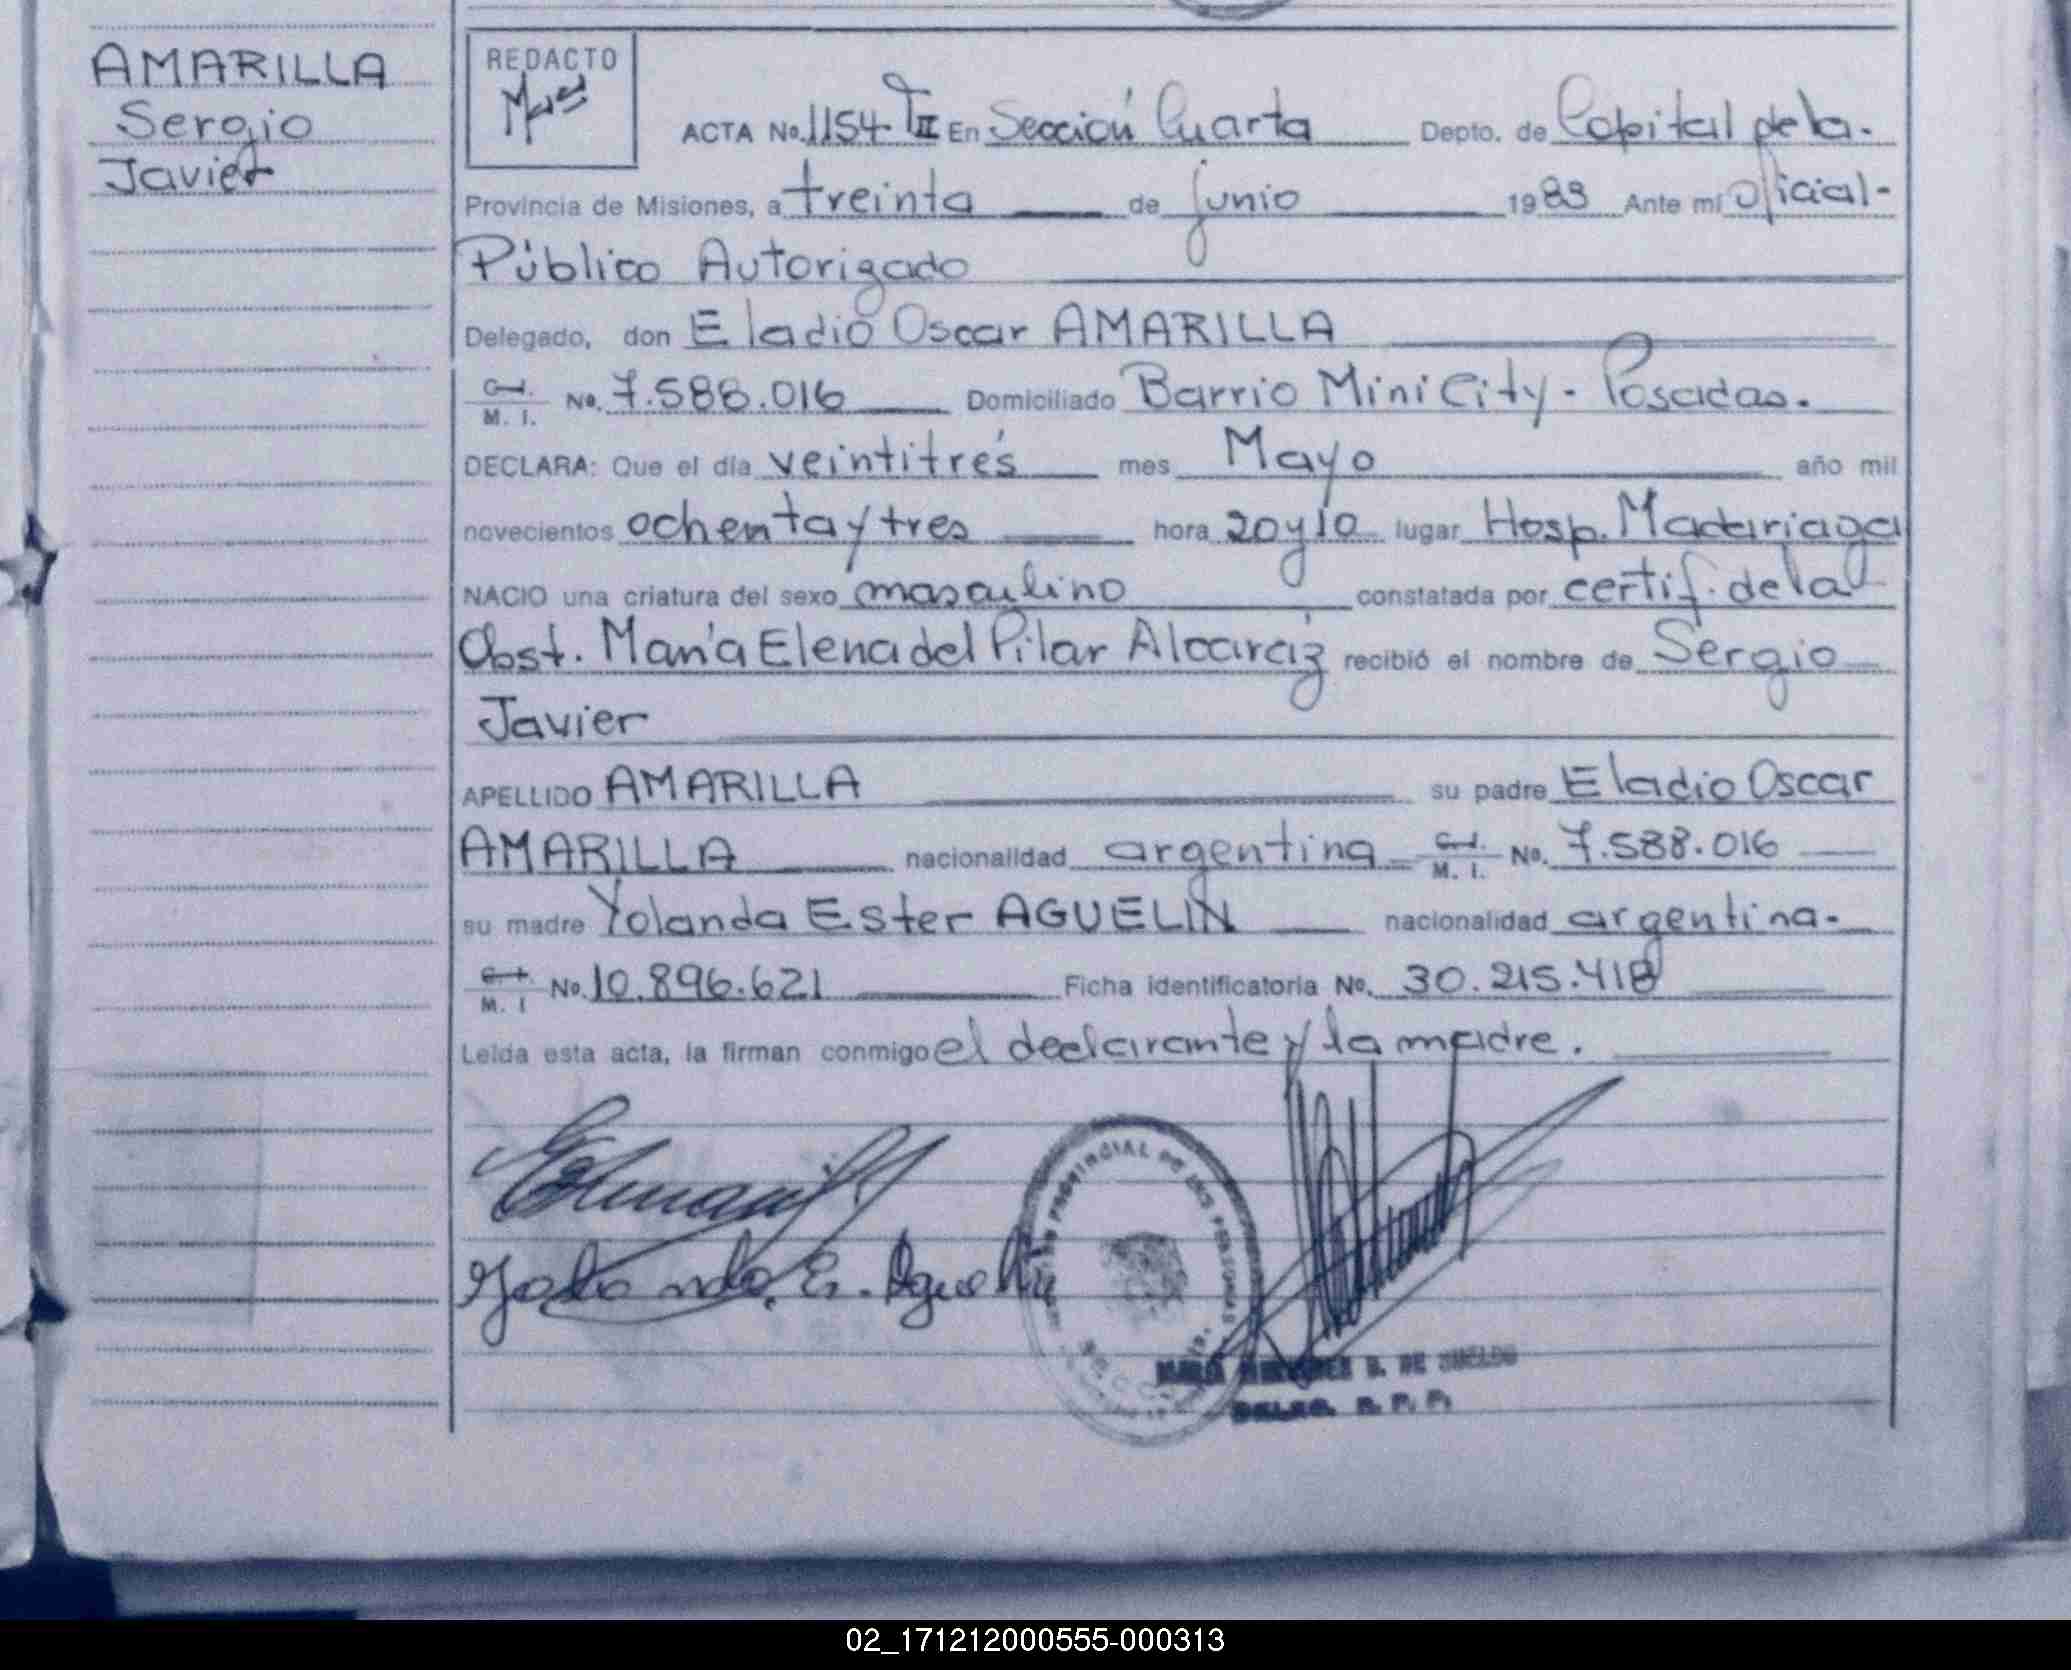 AMARILLA
Sergio
Javier
REDACTO
ACTA No. 1154 TII En Sección Cuarta Depto. de Capital de la.
Provincia de Misiones, a treinta de junio 1983 Ante mí Oficial-
Público Autorizado
Delegado, don Eladio Oscar AMARILLA
C.I. M. I. No. 7.588.016 Domiciliado Barrio Mini City - Posadas.
DECLARA: Que el día veintitrés mes Mayo año mil
novecientos ochenta y tres hora 20 y 10 lugar Hosp. Madariaga
NACIO una criatura del sexo masculino constatada por certif. de la
Obst. María Elena del Pilar Alcaráz recibió el nombre de Sergio
Javier
APELLIDO AMARILLA su padre Eladio Oscar
AMARILLA nacionalidad argentina C.I. M. I. No. 7.588.016
su madre Yolanda Ester AGUELIN nacionalidad argentina.
C.I. M. I No. 10.896.621 Ficha identificatoria No. 30.215.418
Leída esta acta, la firman conmigo el declarante y la madre.
Yolanda E. Aguelin
PROVINCIAL DE LAS PERSONAS
B. DE SUELDO
DELEG. R. P. P.
02_171212000555-000313